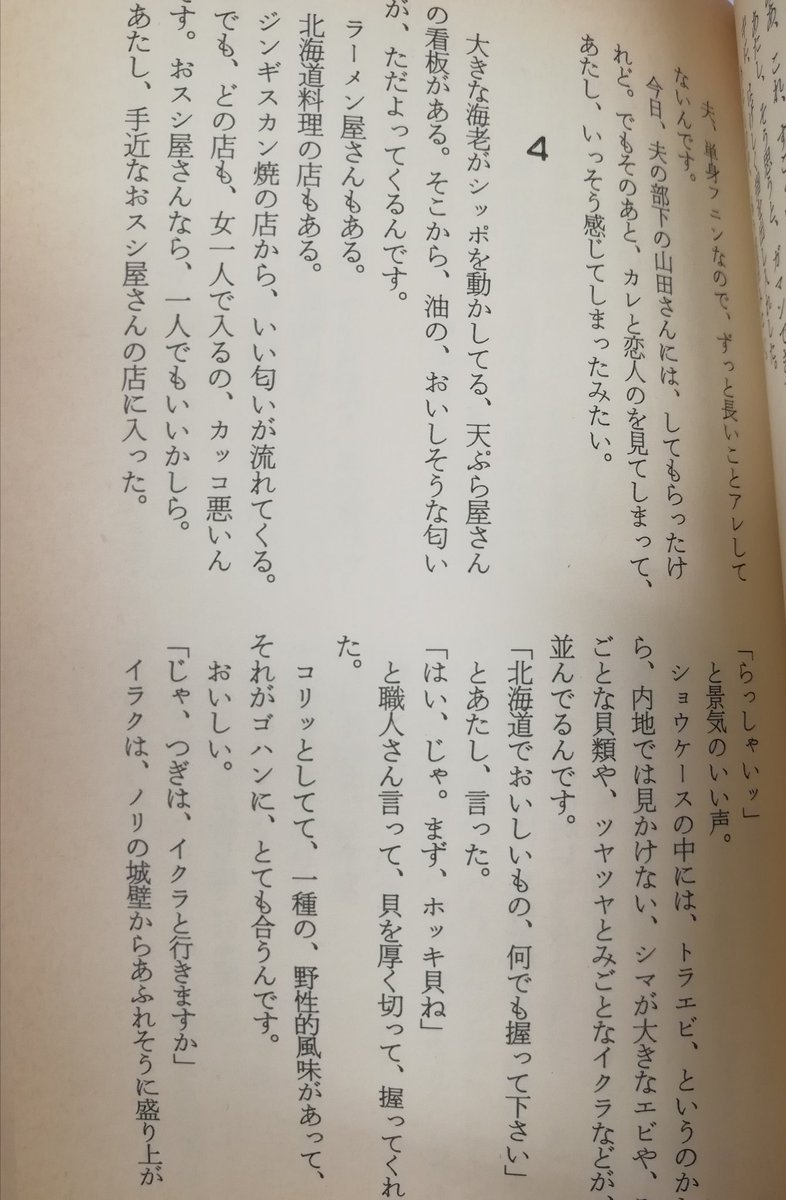 夫、単身フニンなので、ずっと長いことアレして
ないんです。
今日、夫の部下の山田さんには、してもらったけ
れど。でもそのあと、カレと恋人のを見てしまって、
あたし、いっそう感じてしまったみたい。
4
大きな海老がシッポを動かしてる、天ぷら屋さん
の看板がある。そこから、油の、おいしそうな匂い
が、ただよってくるんです。
ラーメン屋さんもある。
北海道料理の店もある。
ジンギスカン焼の店から、いい匂いが流れてくる。
でも、どの店も、女一人で入るの、カッコ悪いん
です。おスシ屋さんなら、一人でもいいかしら。
あたし、手近なおスシ屋さんの店に入った。
「らっしゃいッ」
と景気のいい声。
ショウケースの中には、トラエビ、というのか
ら、内地では見かけない、シマが大きなエビや、
ごとな貝類や、ツヤツヤとみごとなイクラなどが、
並んでるんです。
「北海道でおいしいもの、何でも握って下さい」
とあたし、言った。
「はい、じゃ。まず、ホッキ貝ね」
と職人さん言って、貝を厚く切って、握ってくれ
た。
コリッとしてて、一種の、野性的風味があって、
それがゴハンに、とても合うんです。
おいしい。
「じゃ、つぎは、イクラと行きますか」
イラクは、ノリの城壁からあふれそうに盛り上が